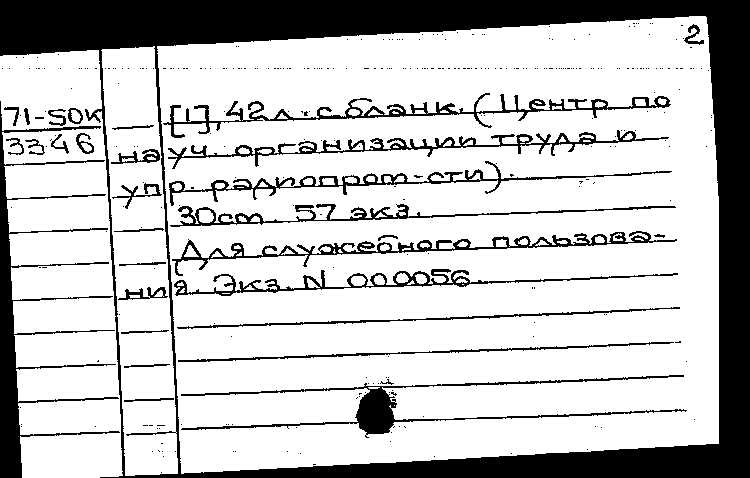 2
71-50к
3346
[1], 42л. с бланк. (Центр по
науч. организации труда и
упр. радиопром-сти).
30см. 57 экз.
Для служебного пользова-
ния. Экз. N 000056.